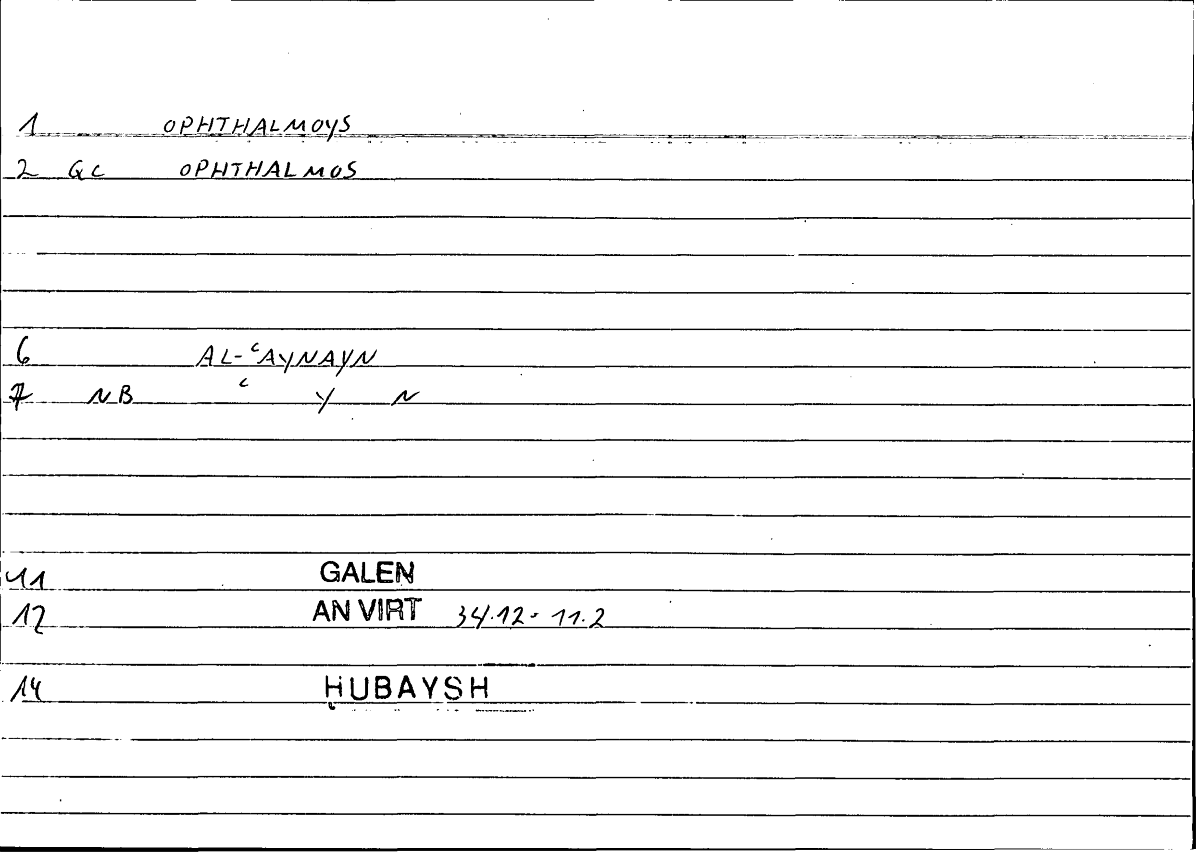 1 OPHTHALMOYS
2 GC OPHTHALMOS
6 AL-ʿAYNAYN
7 NB ʿ Y N
11 GALEN
12 AN VIRT 34.12 - 11.2
14 ḤUBAYSH